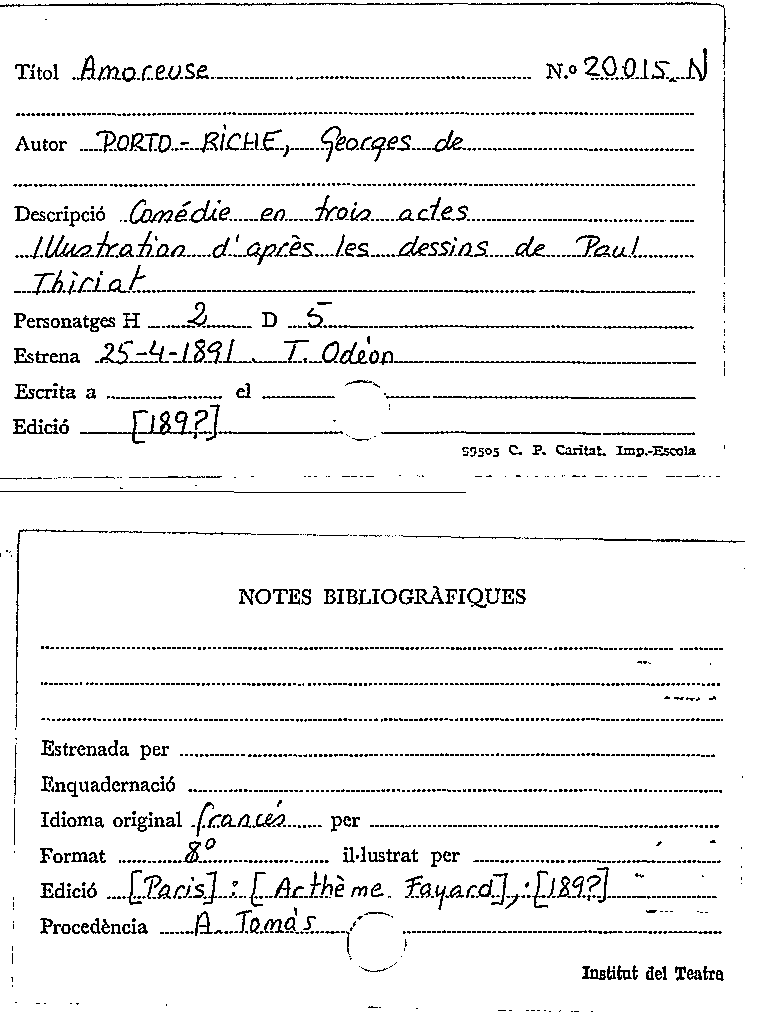 Títol Amoreuse N.º 20015 N
Autor PORTO-RICHE, Georges de
Descripció Comédie en trois actes
Illustration d'après les dessins de Paul
Thiriat
Personatges H 2 D 5
Estrena 25-4-1891. T. Odéon
Escrita a el
Edició [189?]
59505 C. P. Caritat. Imp.-Escola
NOTES BIBLIOGRÀFIQUES
Estrenada per
Enquadernació
Idioma original francés per
Format 8º il·lustrat per
Edició [Paris] : [Arthème Fayard], : [189?]
Procedència A. Tomás
Institut del Teatre